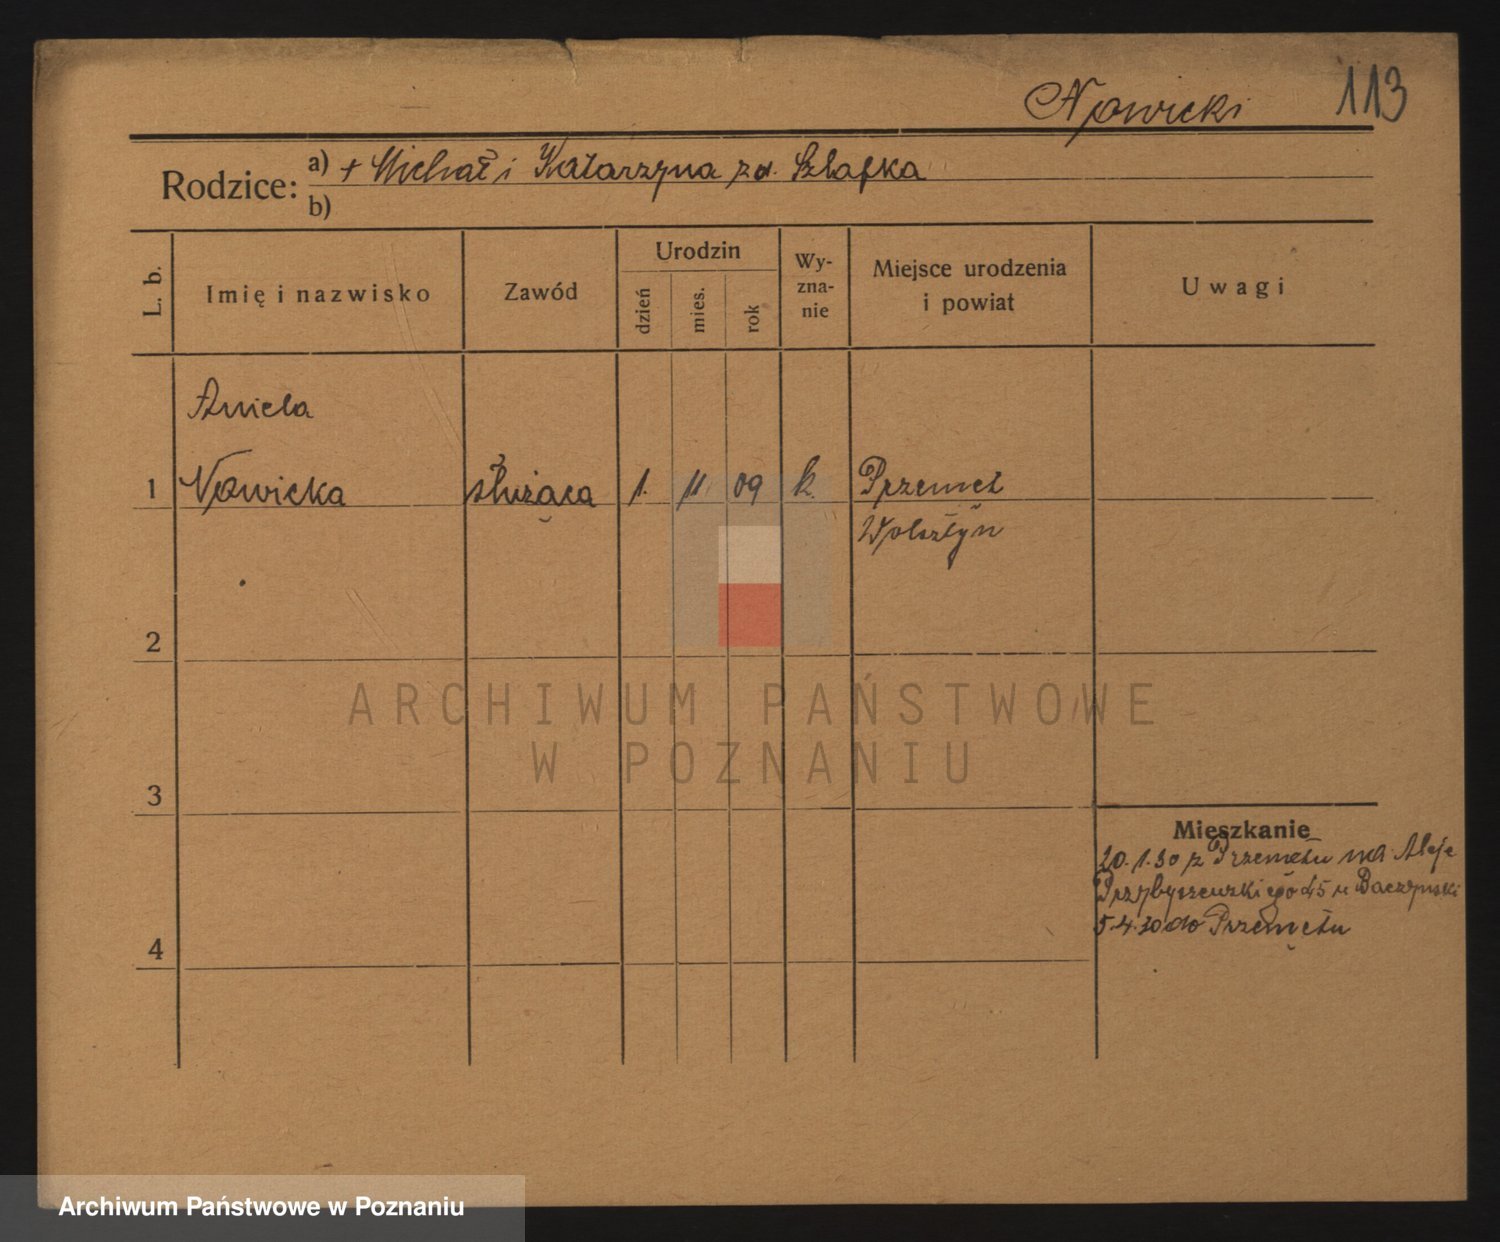 Nowicki 113
Rodzice: a) + Michał i Katarzyna zd. Szlafka
b)
L. b. Imię i nazwisko Zawód Urodzin dzień mies. rok Wyznanie Miejsce urodzenia i powiat Uwagi
Aniela
1 Nowicka służąca 1. 11 09 k. Przemęt
Wolsztyn
2
ARCHIWUM PAŃSTWOWE
W POZNANIU
3
Mieszkanie
20.1.30 z Przemętu na Aleje
Przybyszewskiego 45 u Baczyński
5.4.30 do Przemętu
4
Archiwum Państwowe w Poznaniu